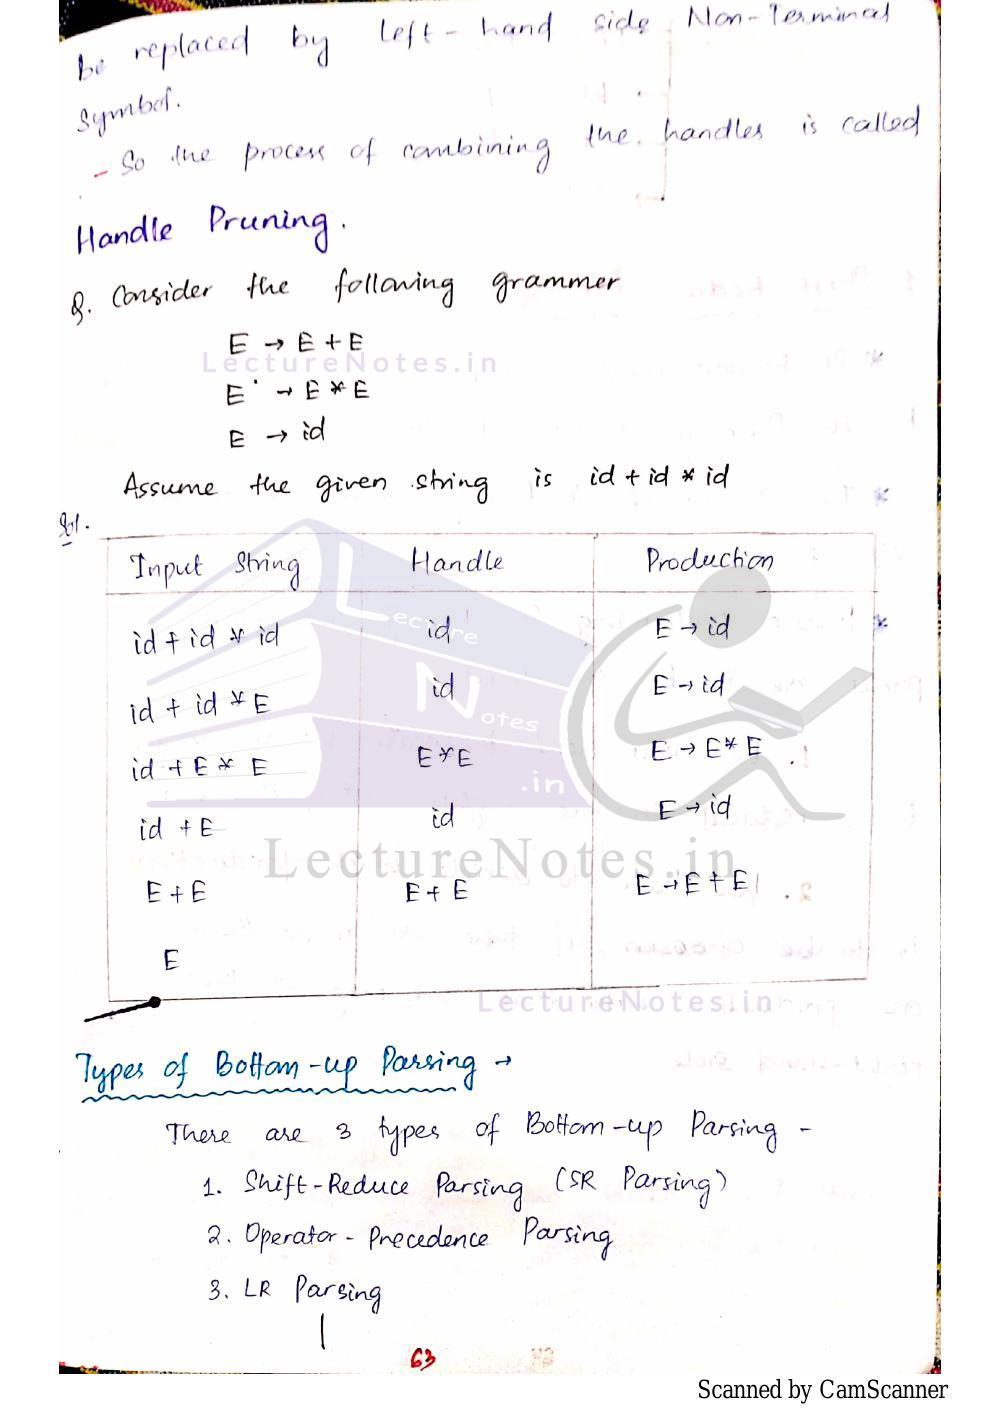 be replaced by left-hand side Non-Terminal
Symbol.
- So the process of combining the handles is called
Handle Pruning.
Q. Consider the following grammer
E → E + E
LectureNotes.in
E → E * E
E → id
Assume the given string is id + id * id
Sol.
Input String Handle Production
id + id * id id E → id
id + id * E id E → id
id + E * E E * E E → E * E
id + E id E → id
LectureNotes.in
E + E E + E E → E + E
E
LectureNotes.in
Types of Bottom-up Parsing →
There are 3 types of Bottom-up Parsing -
1. Shift-Reduce Parsing (SR Parsing)
2. Operator-Precedence Parsing
3. LR Parsing
63
Scanned by CamScanner